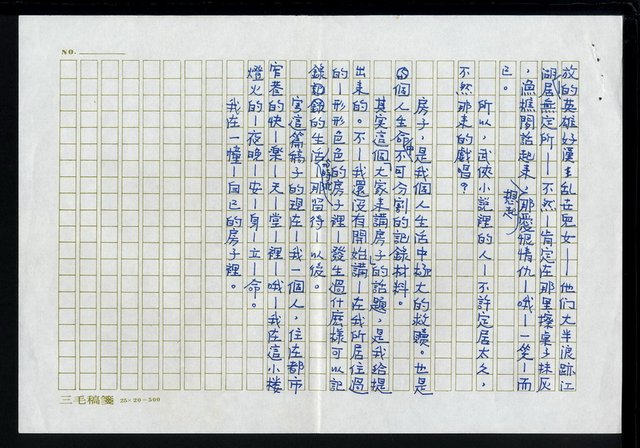 放的英雄好漢
亂在兒女——他們大半浪跡江
湖居無定所——不然——肯定在那里擦桌子抹灰
,漁樵閒話起來,想起那愛恨情仇——哦——一笑——而
已。
所以,武俠小說裡的人——不許定居太久,
不然那來的戲唱?
房子,是我個人生活中極大的救贖。也是
個人生命中不可分割的記錄材料。
其實這個「大家來講房子」的話題,是我給提
出來的。不——我還沒有開始講——在我所居住過
的——形形色色的房子裡——發生過什麼樣可以記
錄的生活——那留待——以後。
寫這篇稿子的現在——我一個人,住在都市
窄巷的快——樂——天——堂——裡——哦——我在這小樓
燈火的——夜晚——安——身——立——命。
我在一幢——自己的房子裡。
NO.
三毛稿箋 25×20=500